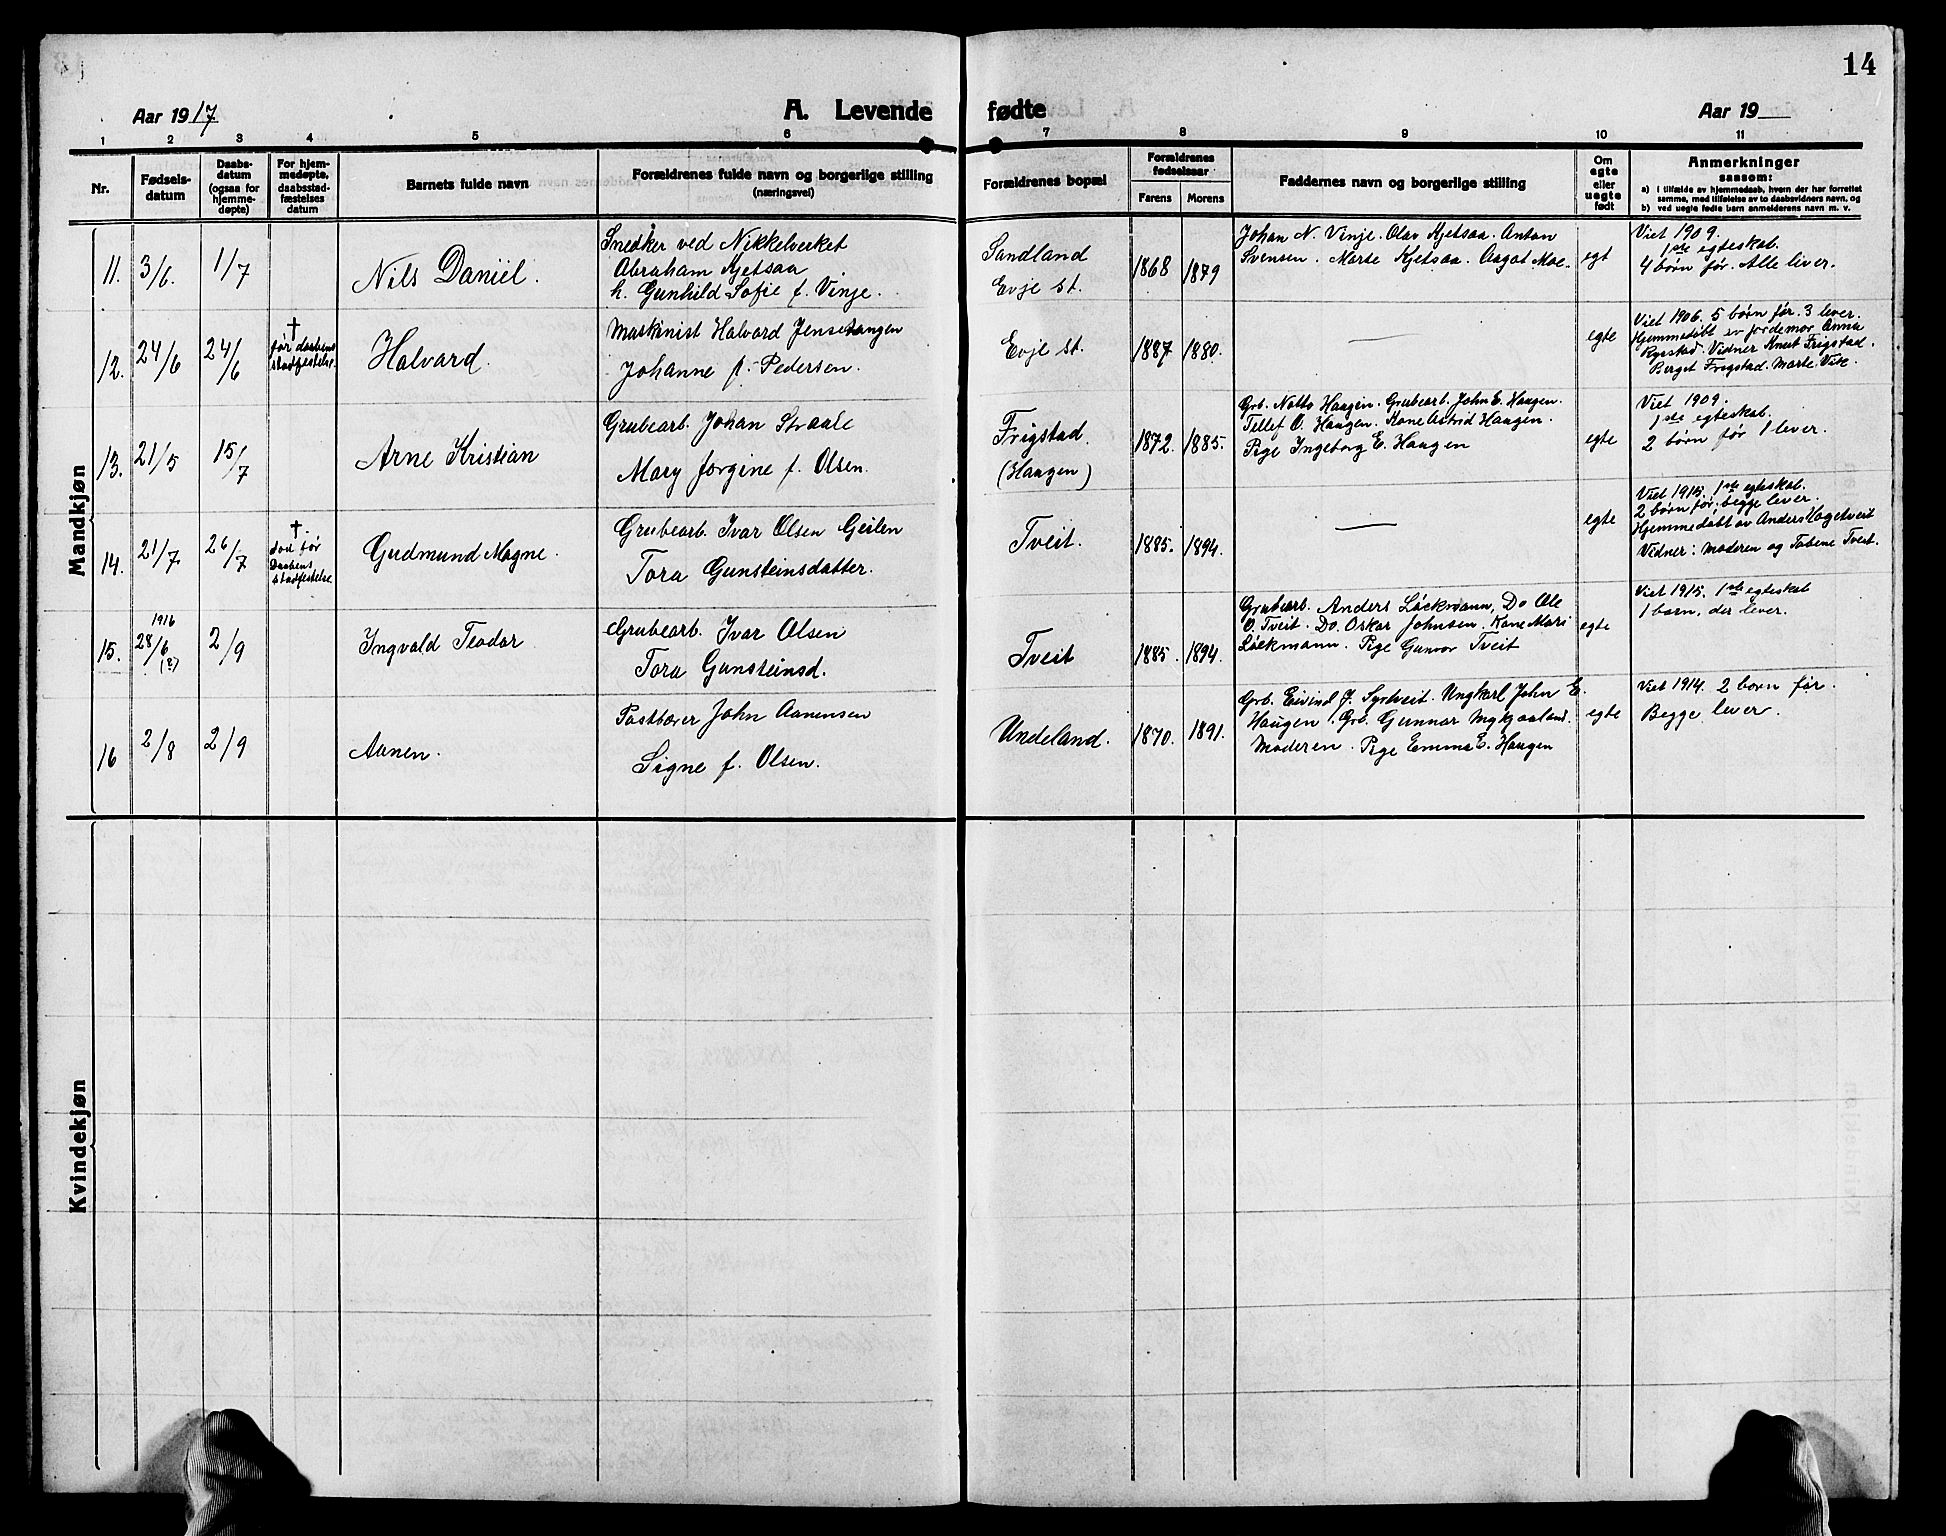 14
Aar 1917
A. Levende fødte
Aar 19
1 2 3 4 5 6 7 8 9 10 11
Nr.
Fødsels-
datum
Daabs-
datum
(ogsaa for
hjemme-
døpte)
For hjem-
medøpte,
daabsstad-
fæstelses
datum
Barnets fulde navn
Forældrenes fulde navn og borgerlige stilling
(næringsvei)
Forældrenes bopæl
Forældrenes
fødselsaar
Farens Morens
Faddernes navn og borgerlige stilling
Om
egte
eller
uegte
født
Anmerkninger
saasom:
a) i tilfælde av hjemmedaab, hvem der har forrettet
samme, med tilføielse av to daabsvidners navn, og
b) ved uegte fødte barn anmelderens navn m. v.
Mandkjøn
11. 3/6. 1/7 Nils Daniel.
Snedker ved Nikkelverket
Abraham Kjetsaa
h. Gunhild Sofie f. Vinje.
Sandland
Evje st.
1868 1879
Johan N. Vinje. Olav Kjetsaa. Anton
Svensen. Marte Kjetsaa. Aagot Moe.
egt
Viet 1909.
1ste egteskab.
4 børn før. Alle lever.
12. 24/6 24/6
†
før daabens
stadfestelse.
Halvard.
Maskinist Halvard Jensen
Johanne f. Pedersen.
Evje st.
1887 1880.
—
egte
Viet 1906. 5 børn før. 3 lever.
Hjemmedøbt av jordemor Anna
Rysstad. Vidner Knut Frigstad.
Berget Frigstad. Marte Vik.
13. 21/5 15/7 Arne Kristian
Grubearb. Johan Straale
Mary Jørgine f. Olsen.
Frigstad.
(Haugen)
1872. 1885.
Grb. Notto Haugen. Grubearb. John E. Haugen.
Tellef O. Haugen. Kone Astrid Haugen.
Pige Ingeborg E. Haugen
egte
Viet 1909.
1ste egteskab.
2 børn før 1 lever.
14. 21/7. 26/7
†.
død før
Daabens
stadfestelse
Gudmund Magne.
Grubearb. Ivar Olsen Geilen
Tora Gunsteinsdatter.
Tveit.
1885. 1894.
—
egte
Viet 1915. 1ste egteskab.
2 børn før, begge lever.
Hjemmedøbt av Anders
Vidner: Moderen og Tobene Tveit.
15. 1916
28/6
(?)
2/9 Ingvald Teodor
Grubearb. Ivar Olsen
Tora Gunsteinsd.
Tveit
1885. 1894.
Grubearb. Anders Løckmann, Do Ole
O. Tveit. Do. Oskar Johnsen. Kone Mari
Løckmann. Pige Gunvor Tveit
egte
Viet 1915. 1ste egteskab
1 barn, der lever.
16 2/8 2/9 Aanen.
Postbærer John Aanensen
Signe f. Olsen.
Undeland.
1870. 1891.
Grb. Eivind J. Syrtveit. Ungkarl John E.
Haugen. Grb. Gunnar Mykjaaland.
Moderen. Pige Emma E. Haugen
egte
Viet 1914. 2 børn før.
Begge lever.
Kvindekjøn